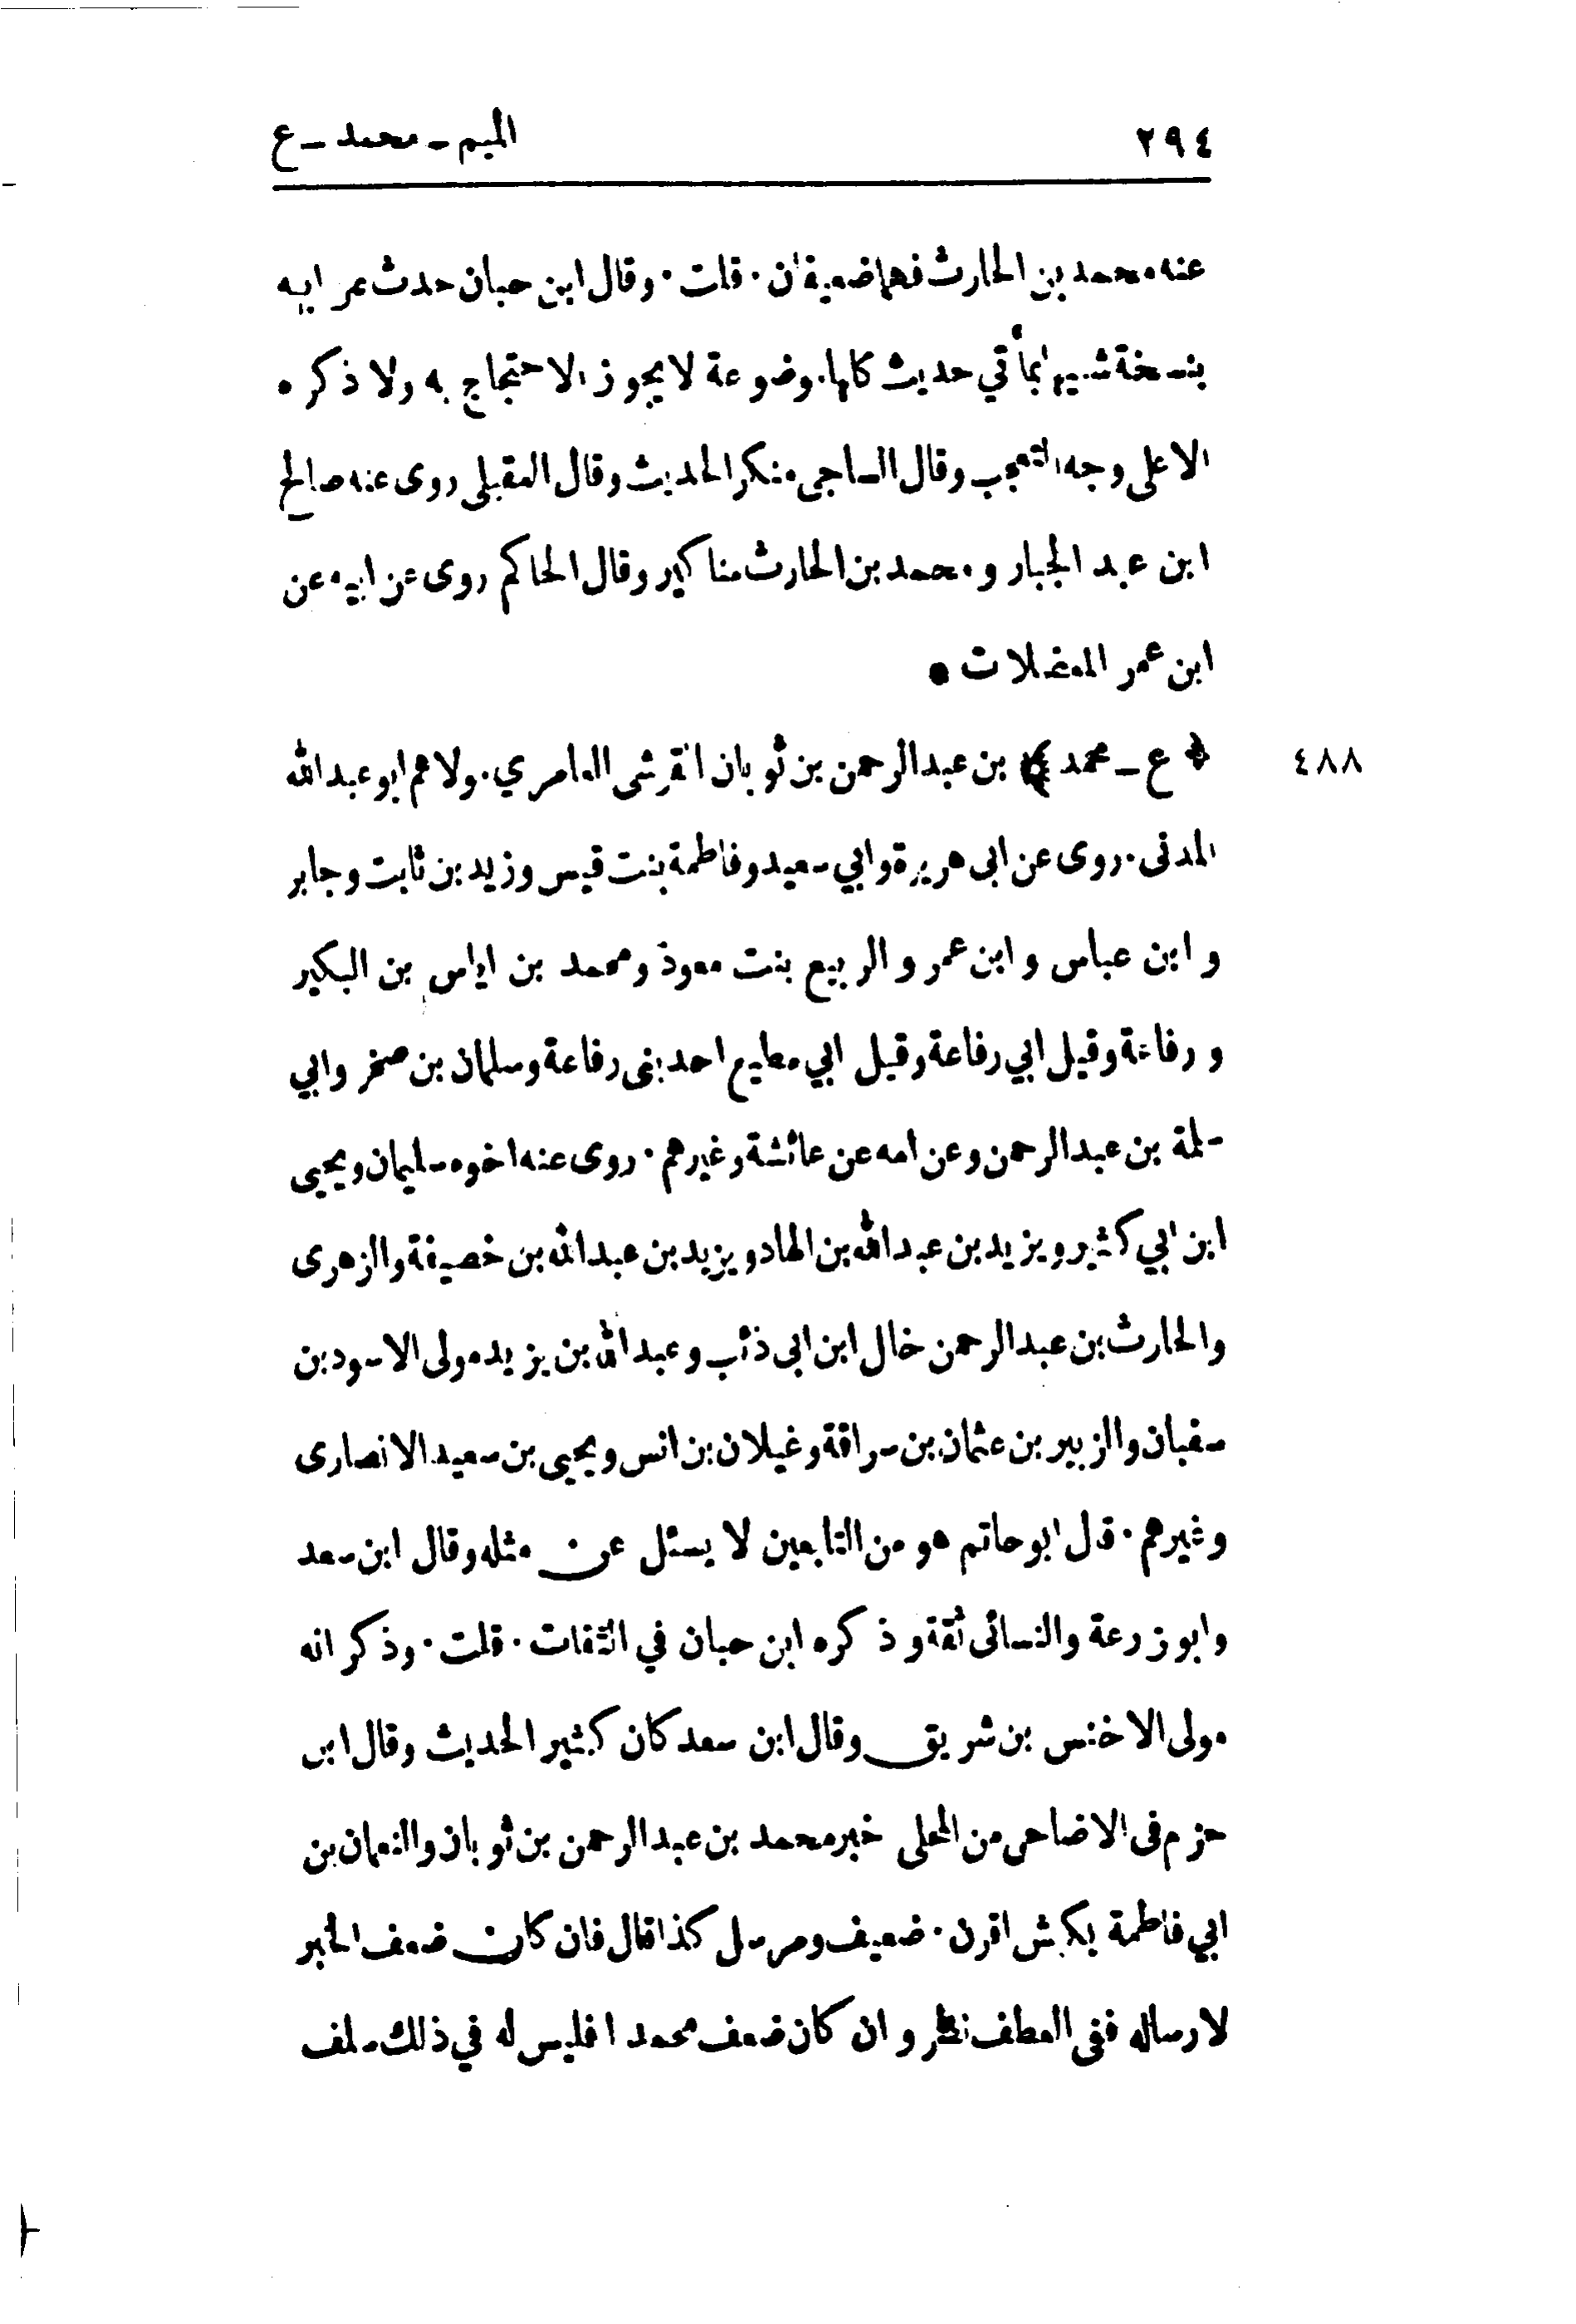 ٢٩٤
الميم - محمد - ع
عنه محمد بن الحارث فهما ضعيفان · قلت · وقال ابن حبان حدث عن ابيه
بنسخة شبيها بمأتي حديث كلها موضوعة لا يجوز الاحتجاج به ولا ذكره
الا على وجه التعجب وقال الساجى منكر الحديث وقال العقيلى روى عنه صالح
ابن عبد الجبار ومحمد بن الحارث مناكير وقال الحاكم روى عن ابيه عن
ابن عمر المعضلات •
٤٨٨ ﴿ ع - محمد ﴾ بن عبد الرحمن بن ثوبان القرشى العامري · ولاهم ابو عبد الله
المدنى · روى عن ابى هريرة وابي سعيد وفاطمة بنت قيس وزيد بن ثابت وجابر
وابن عباس وابن عمر والربيع بنت معوذ ومحمد بن اياس بن البكير
ورفاعة وقيل ابي رفاعة وقيل ابي مطيع احد بنى رفاعة وسلمان بن صخر وابي
سلمة بن عبد الرحمن وعن امه عن عائشة وغيرهم · روى عنه اخوه سليمان ويحيى
ابن ابي كثير ويزيد بن عبد الله بن الهاد ويزيد بن عبد الله بن خصيفة والزهرى
والحارث بن عبد الرحمن خال ابن ابى ذئب وعبد الله بن يزيد مولى الاسود بن
سفيان والزبير بن عثمان بن سراقة وغيلان بن انس ويحيى بن سعيد الانصارى
وغيرهم · قال ابو حاتم هو من التابعين لا يسئل عن مثله وقال ابن سعد
وابو زرعة والنسائى ثقة وذكره ابن حبان في الثقات · قلت · وذكر انه
مولى الاخنس بن شريق وقال ابن سعد كان كثير الحديث وقال ابن
حزم فى الاضاحى من المحلى خبر محمد بن عبد الرحمن بن ثوبان والنعمان بن
ابي فاطمة بكبش اقرن · ضعيف ومرسل كذا قال فان كان ضعف الخبر
لارساله ففى العطف نظر وان كان ضعف محمد ا فليس له في ذلك سلف